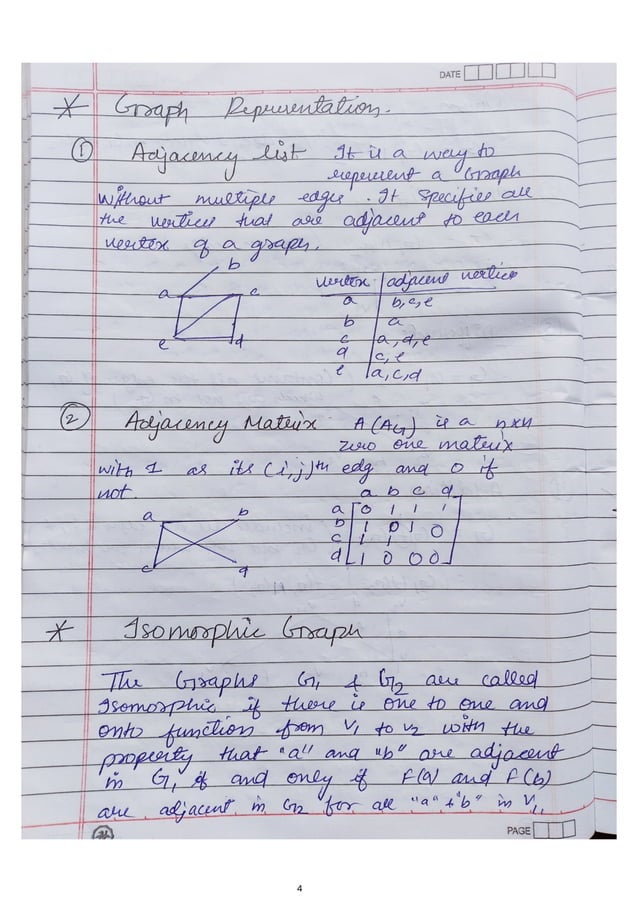 DATE
* Graph Representation.
① Adjacency list It is a way to
represent a Graph
without multiple edges. It specifies all
the vertices that are adjacent to each
vertex of a graph.
b
a c
e d
vertex adjacent vertices
a b,c,e
b a
c a,d,e
d c,e
e a,c,d
② Adjacency Matrix A(AG) is a nxn
zero one matrix
with 1 as its (i,j)th edg and 0 if
not.
a b
c d
a b c d
a 0 1 1 1
b 1 0 1 0
c 1 1 0
d 1 0 0 0
* Isomorphic Graph
The Graphs G1 & G2 are called
Isomorphic if there is one to one and
onto function from V1 to V2 with the
property that "a" and "b" are adjacent
in G1 if and only if F(a) and F(b)
are adjacent in G2 for all "a" & "b" in V1.
PAGE
4